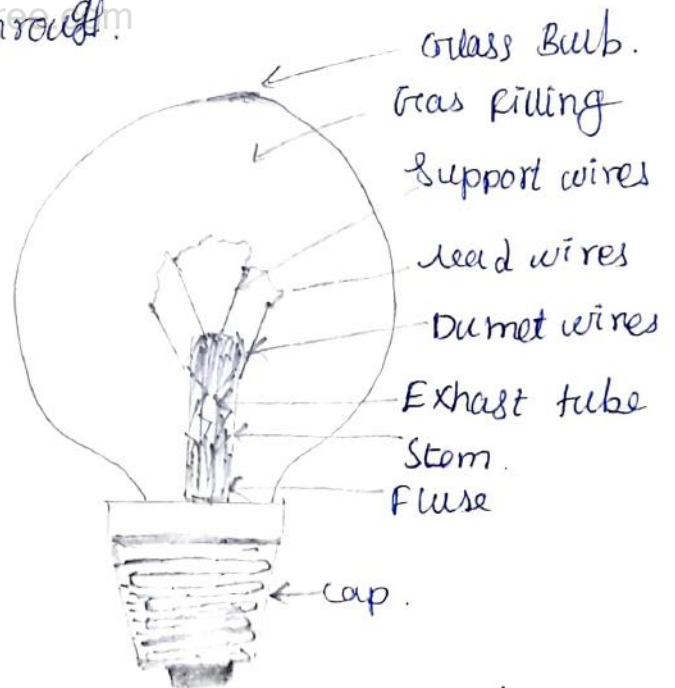 Glass Bulb.
Gas filling
Support wires
Lead wires
Dumet wires
Exhast tube
Stem.
Fluse
cap.